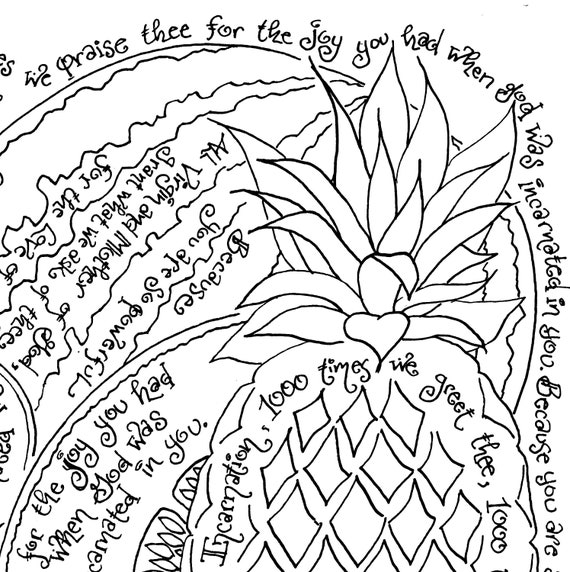 we praise thee for the joy you had when god was incarnated in you. Because you are
All Virgin and Mother
grant what we ask of thee
for the love of God,
Because
you are so powerful
for the joy you had
when God was
incarnated in you.
Incarnation, 1000 times we greet thee, 1000